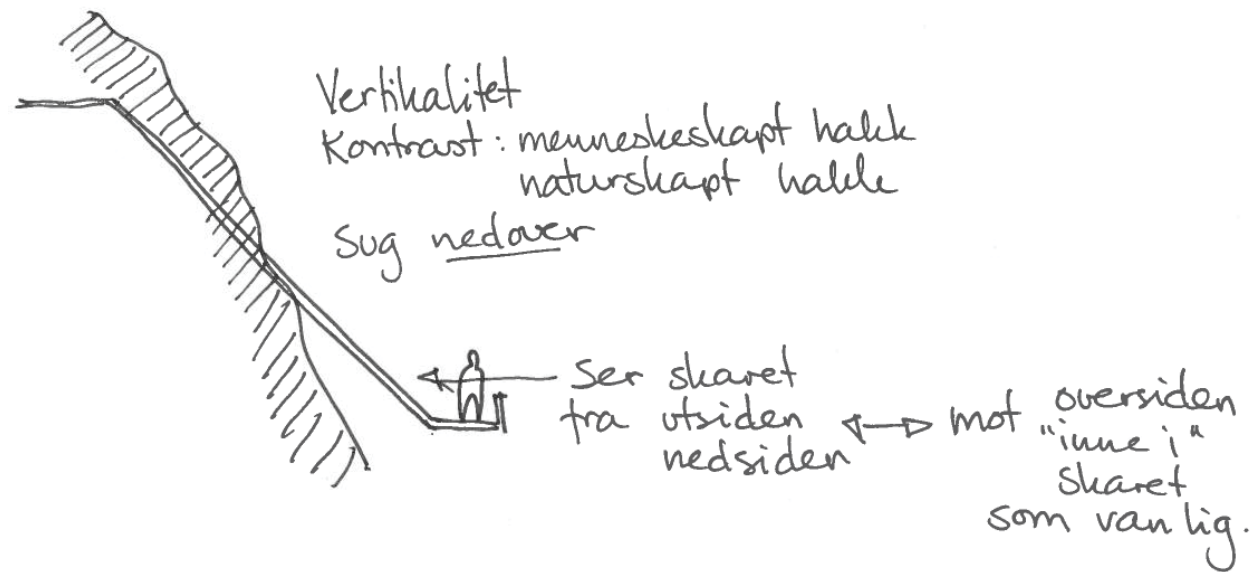 Vertikalitet
Kontrast: menneskeskapt hakk
naturskapt hakk
Sug nedover
Ser skaret
fra utsiden
nedsiden
mot oversiden
"inne i"
skaret
som vanlig.